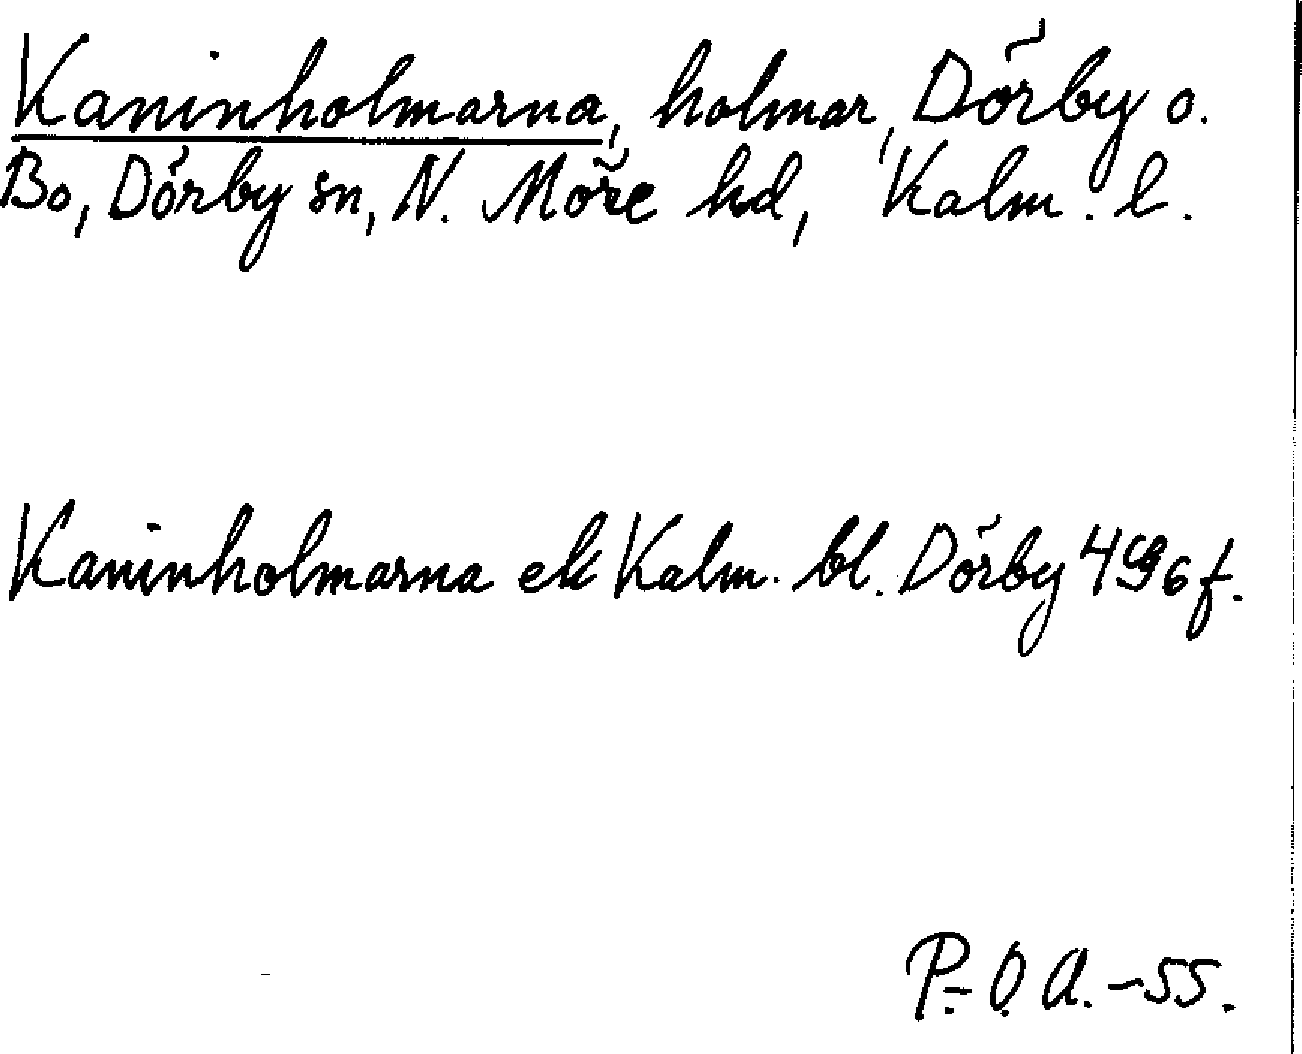 Kaninholmarna, holmar, Dörby o.
Bo, Dörby sn, N. Möre hd, Kalm. l.
Kaninholmarna ek Kalm. bl. Dörby 4 96 f.
P.-O A. -55.